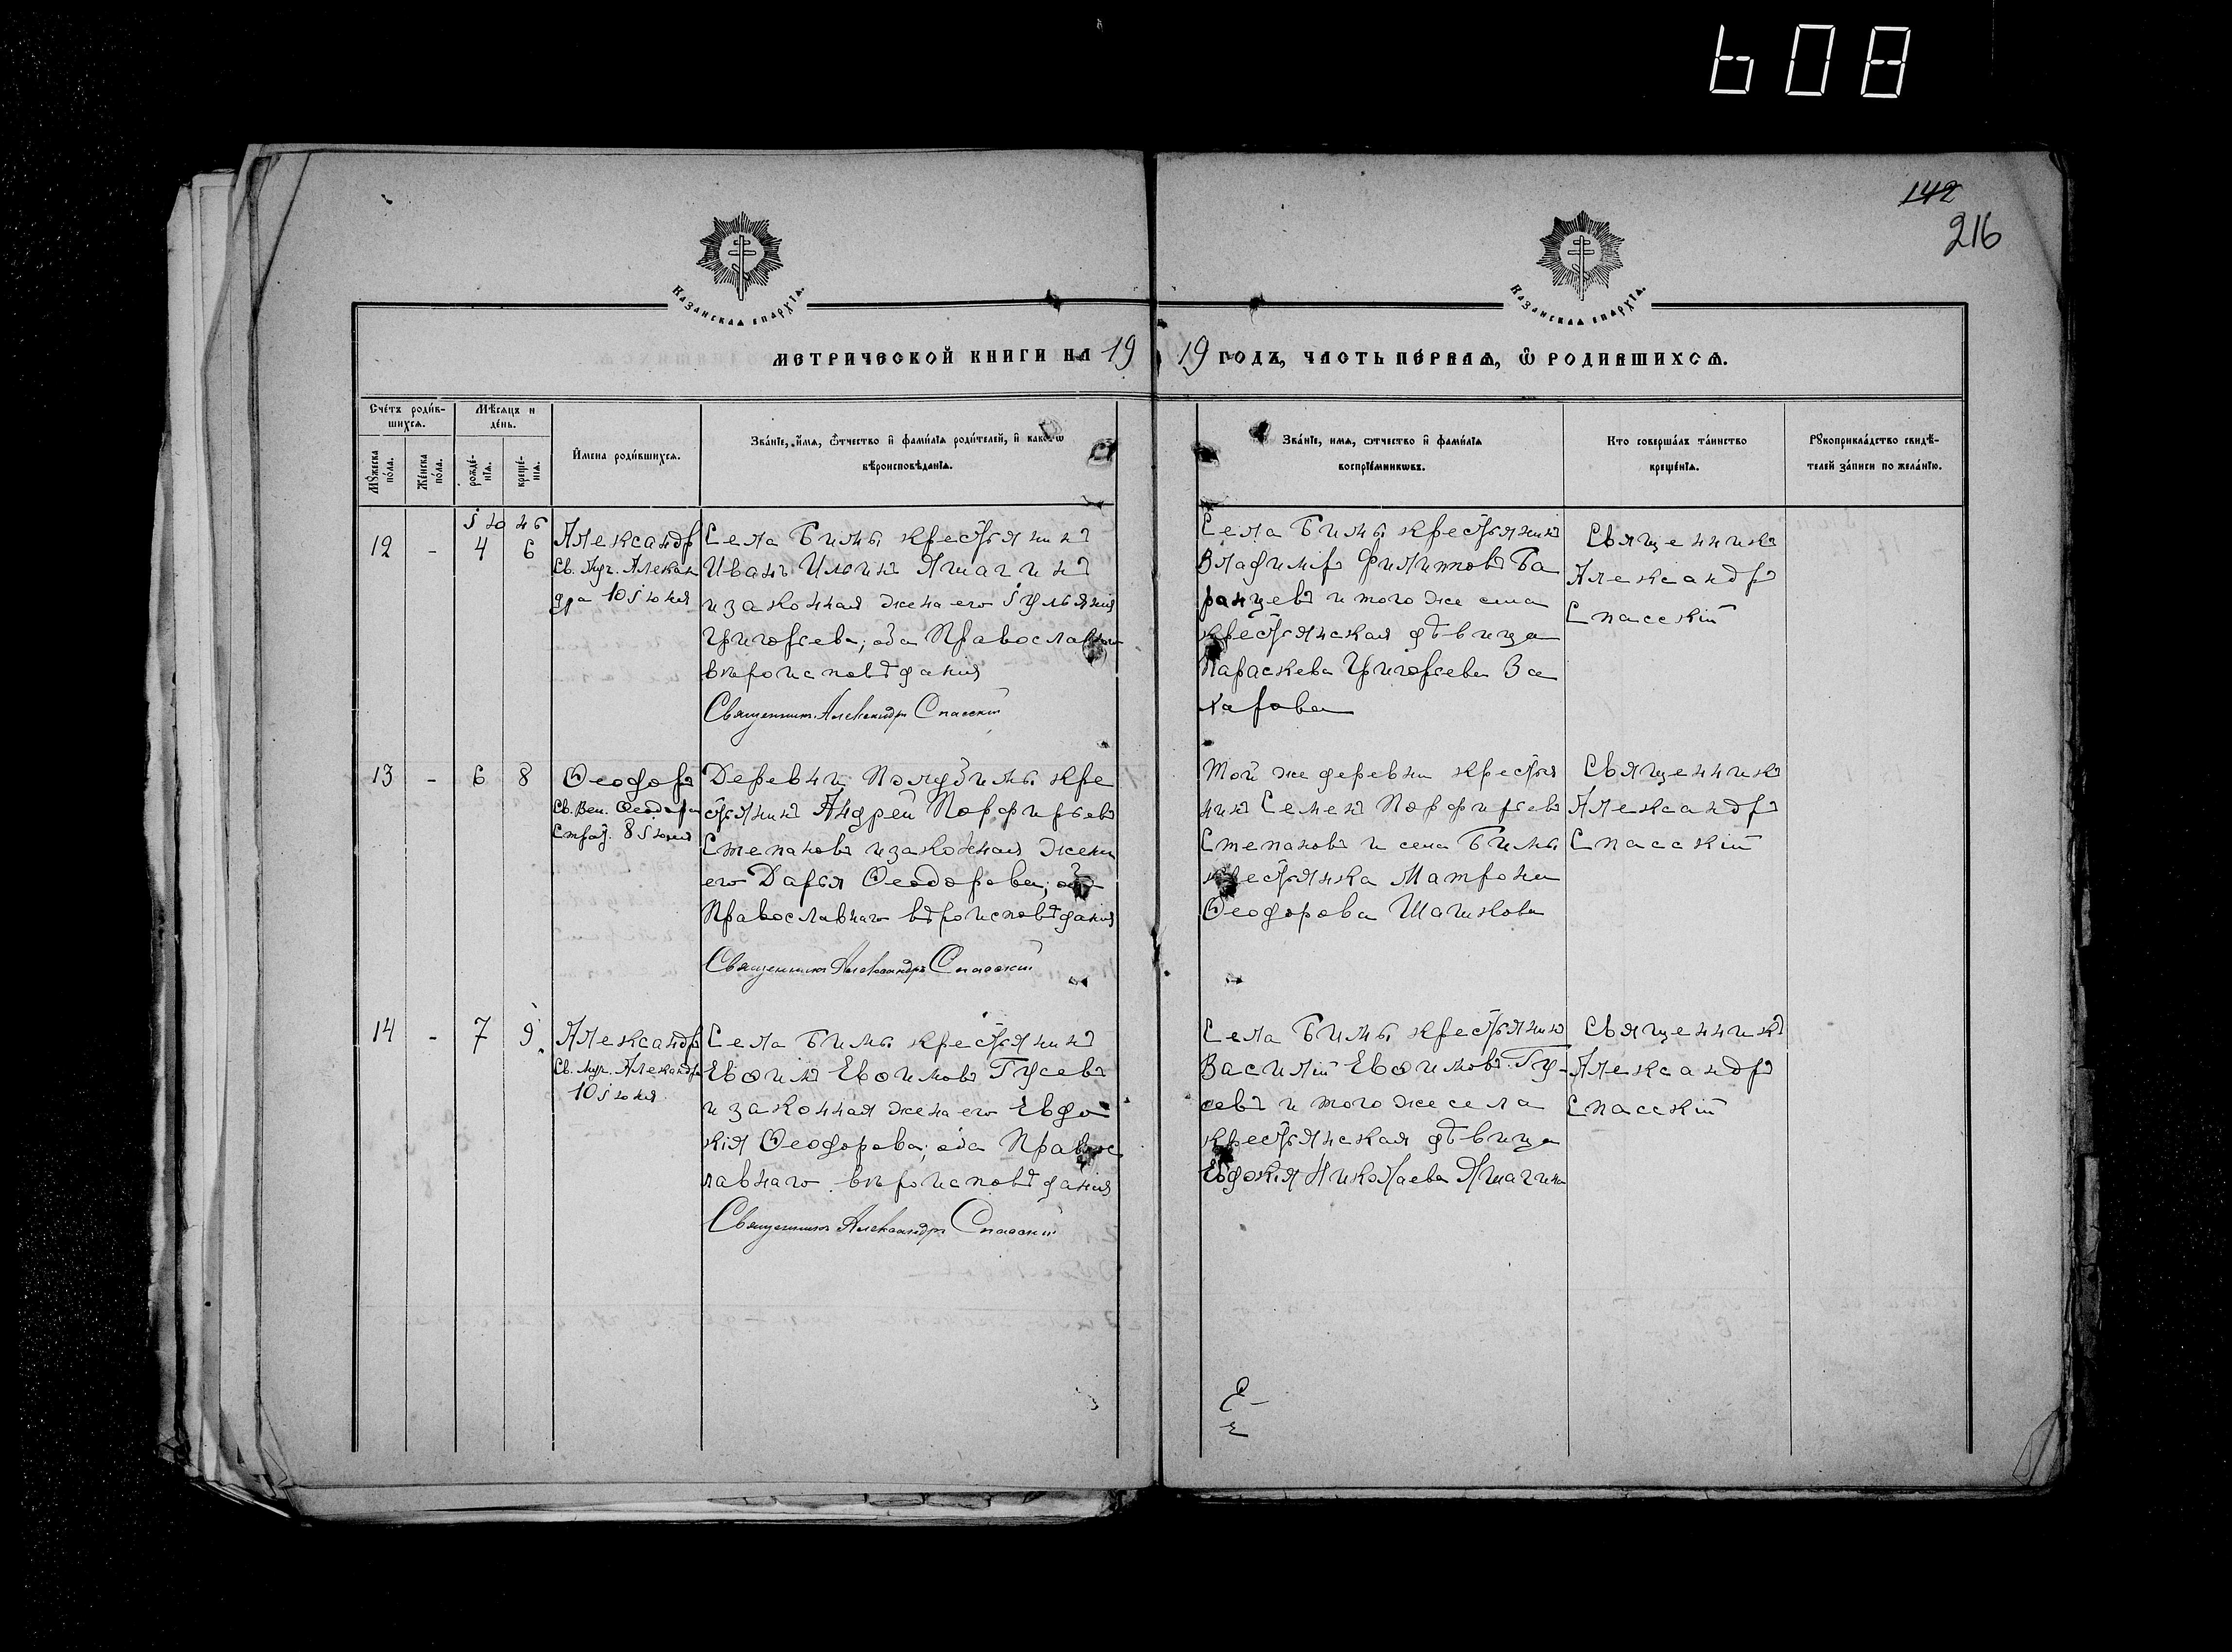 608
142
216
Казанская епархїа.
Казанская епархїа.
МЕТРИЧЕСКОЙ КНИГИ НА 1919 ГОДЪ, ЧАСТЬ ПЕРВАЯ, Ѡ РОДИВШИХСЯ.
Счетъ родив-
шихся.
Мѣсяцъ и
день.
Мужеска
пола.
Женска
пола.
рожде-
нїя.
креще-
нїя.
Имена родившихся.
Званїе, имя, ѡтчество и фамилїя родителей, и какогѡ
вѣроисповѣданїя.
Званїе, имя, ѡтчество и фамилїя
воспрїемникѡвъ.
Кто совершалъ таинство
крещенїя.
Рукоприкладство свидѣ-
телей записи по желанїю.
Іюнь
12 - 4 6
Александр
Св. Муч. Алексан
дра 10 Іюня
Села Бимы крестьянинъ
Иванъ Ильинъ Ямагинъ
и законная жена его Іульянія
Григорьева; оба Православнаго
вѣроисповѣданія
Священникъ Александръ Спасскій
Села Бимы крестьянинъ
Владиміръ Филипповъ Ба
ранцевъ и того же села
крестьянская дѣвица
Параскева Григорьева За
харова
Священникъ
Александръ
Спасскій
13 - 6 8
Ѳеодоръ
Св. Вел. Ѳеодора
Страт. 8 Іюня
Деревни Полубимы кре
стьянинъ Андрей Порфирьевъ
Степановъ и законная жена
его Дарья Ѳеодорова; оба
Православнаго вѣроисповѣданія
Священникъ Александръ Спасскій
Той же деревни крестья
нинъ Семенъ Порфирьевъ
Степановъ и села Бимы
крестьянка Матрона
Ѳеодорова Шагинова
Священникъ
Александръ
Спасскій
14 - 7 9
Александр
Св. Муч. Александра
10 Іюня
Села Бимы крестьянинъ
Евѳимъ Евѳимовъ Гусевъ
и законная жена его Евдо
кія Ѳеодорова; оба Правос
лавнаго вѣроисповѣданія
Священникъ Александръ Спасскій
Села Бимы крестьянинъ
Василій Евѳимовъ Гу-
севъ и того же села
крестьянская дѣвица
Евдокія Николаева Ямагина
Священникъ
Александръ
Спасскій